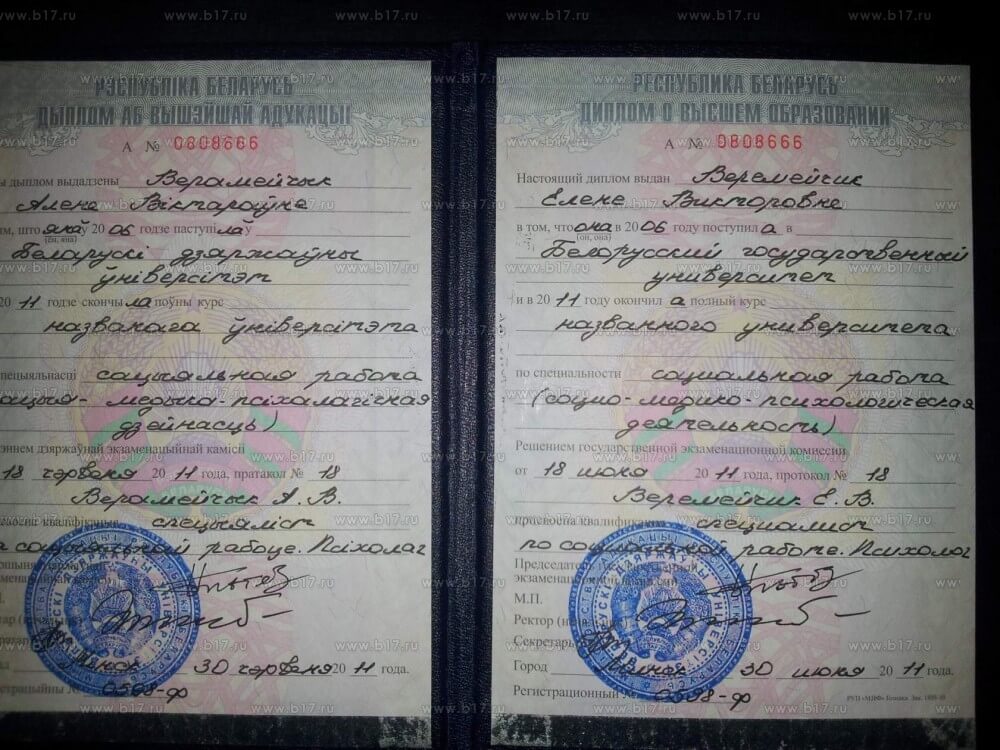 РЭСПУБЛІКА БЕЛАРУСЬ
ДЫПЛОМ АБ ВЫШЭЙШАЙ АДУКАЦЫІ
А № 0808666
дыплом выдадзены Верамейчык
Алене Віктараўне
што яна ў 2006 годзе паступіла ў
(ён, яна)
Беларускі дзяржаўны
ўніверсітэт
20 11 годзе скончыла поўны курс
названага ўніверсітэта
сацыяльная работа
медыка-псіхалагічная
дзейнасць)
дзяржаўнай экзаменацыйнай камісіі
18 чэрвеня 2011 года, пратакол № 18
Верамейчык А. В.
спецыяліст
па сацыяльнай рабоце. Псіхолаг
Мінск 30 чэрвеня 2011 года.
0598-ф
РЕСПУБЛИКА БЕЛАРУСЬ
ДИПЛОМ О ВЫСШЕМ ОБРАЗОВАНИИ
А № 0808666
Настоящий диплом выдан Веремейчик
Елене Викторовне
в том, что она в 2006 году поступила в
(он, она)
Белорусский государственный
университет
и в 2011 году окончила полный курс
названного университета
по специальности социальная работа
(социо-медико-психологическая
деятельность)
Решением государственной экзаменационной комиссии
от 18 июня 2011 года, протокол № 18
Веремейчик Е. В.
присвоена квалификация специалист
по социальной работе. Психолог
Председатель
экзаменационной комиссии
М.П.
Ректор
Секретарь
Город Минск 30 июня 2011 года.
Регистрационный № 0598-ф
www.b17.ru